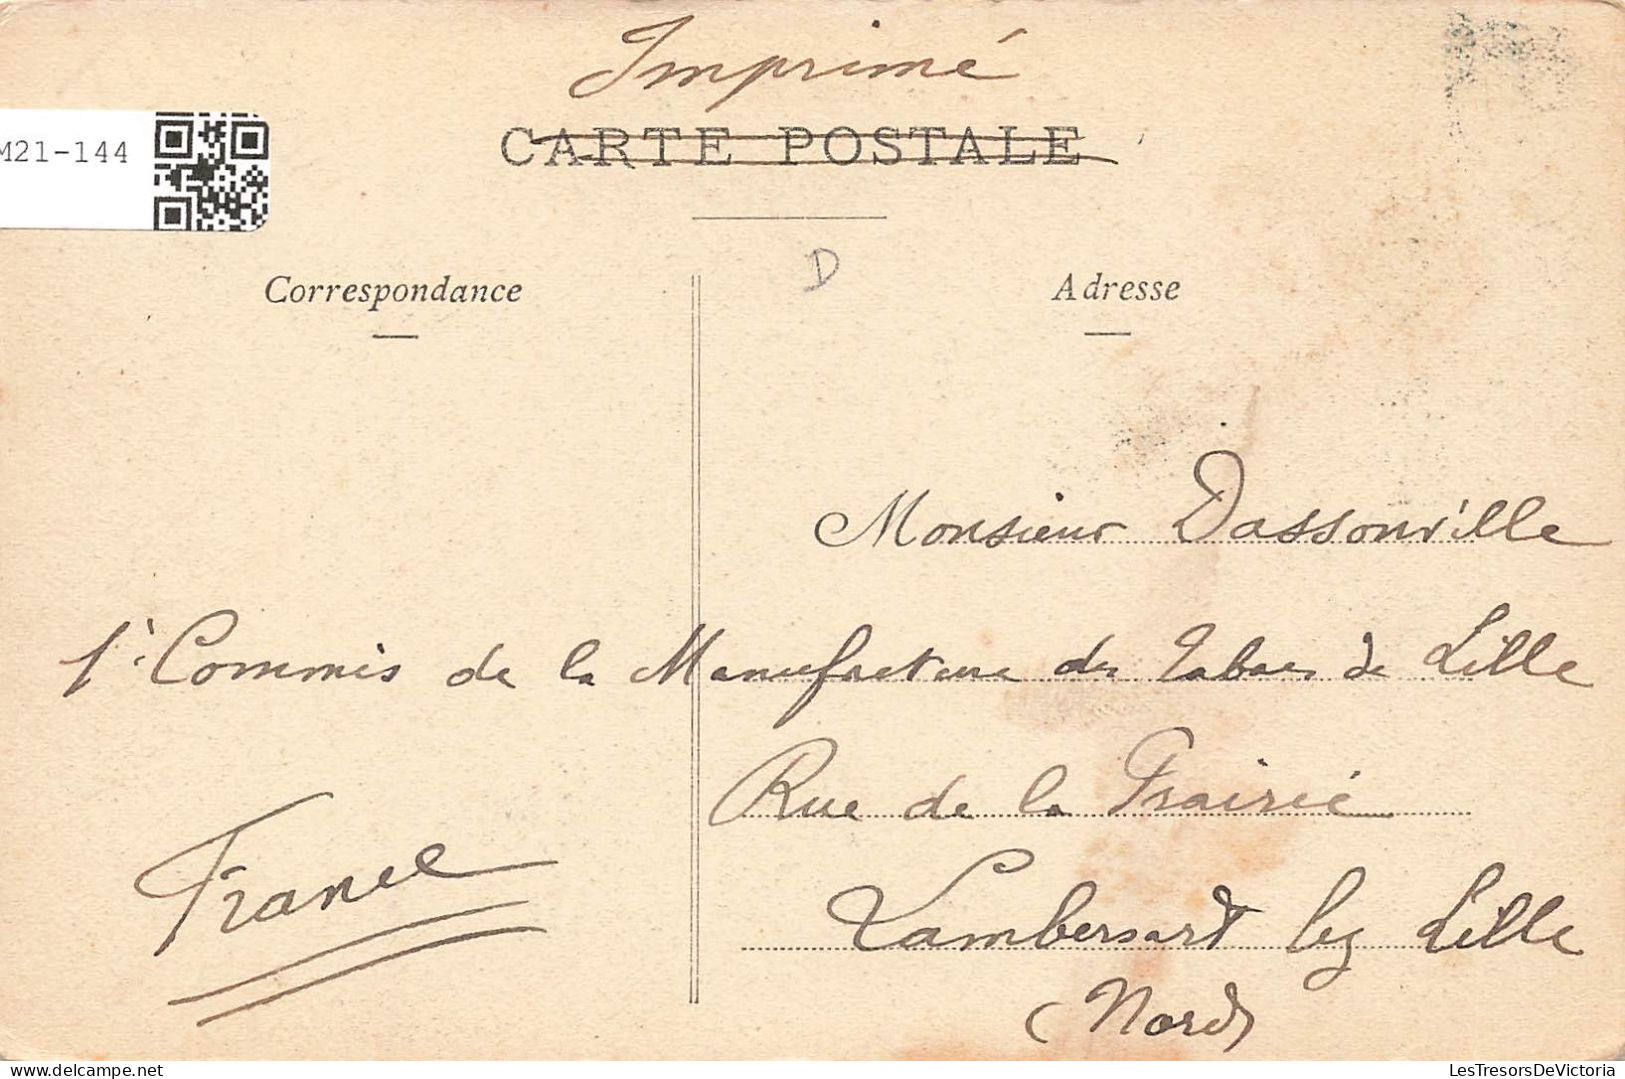 Imprimé
CARTE POSTALE
M21-144
D
Correspondance
Adresse
Monsieur Dassonville
1er Commis de la Manufacture des Tabacs de Lille
Rue de la Prairie
Lambersart lez Lille
(Nord)
France
LesTresorsDeVictoria